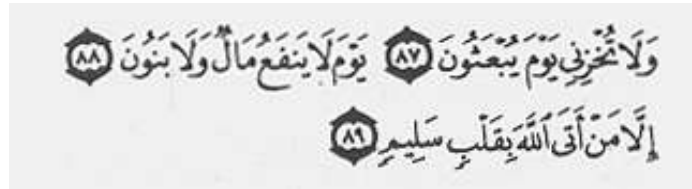 وَلَا تُخْزِنِي يَوْمَ يُبْعَثُونَ ٨٧ يَوْمَ لَا يَنفَعُ مَالٌ وَلَا بَنُونَ ٨٨
إِلَّا مَنْ أَتَى ٱللَّهَ بِقَلْبٍ سَلِيمٍ ٨٩